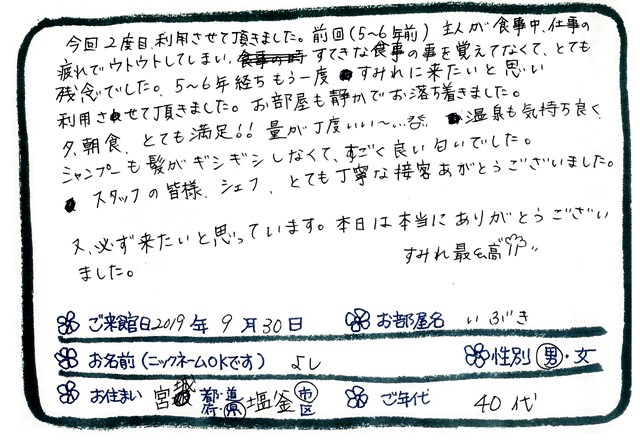 今回2度目、利用させて頂きました。前回(5～6年前) 主人が食事中、仕事の
疲れでウトウトしてしまい、食事の時 すてきな食事の事を覚えてなくて、とても
残念でした。5～6年経ちもう一度 すみれに来たいと思い
利用させて頂きました。お部屋も静かでお落ち着きました。
夕、朝食、とても満足!! 量が丁度いい～… 温泉も気持ち良く
シャンプーも髪がギシギシしなくて、すごく良い匂いでした。
スタッフの皆様、シェフ、とても丁寧な接客あがとうございました。
又、必ず来たいと思っています。本日は本当にありがとうござい
ました。 すみれ最高
ご来館日2019年 9月30日 お部屋名 いぶき
お名前(ニックネームOKです) よし 性別 男・女
お住まい 宮城 都・道・府・県 塩釜 市 区 ご年代 40代